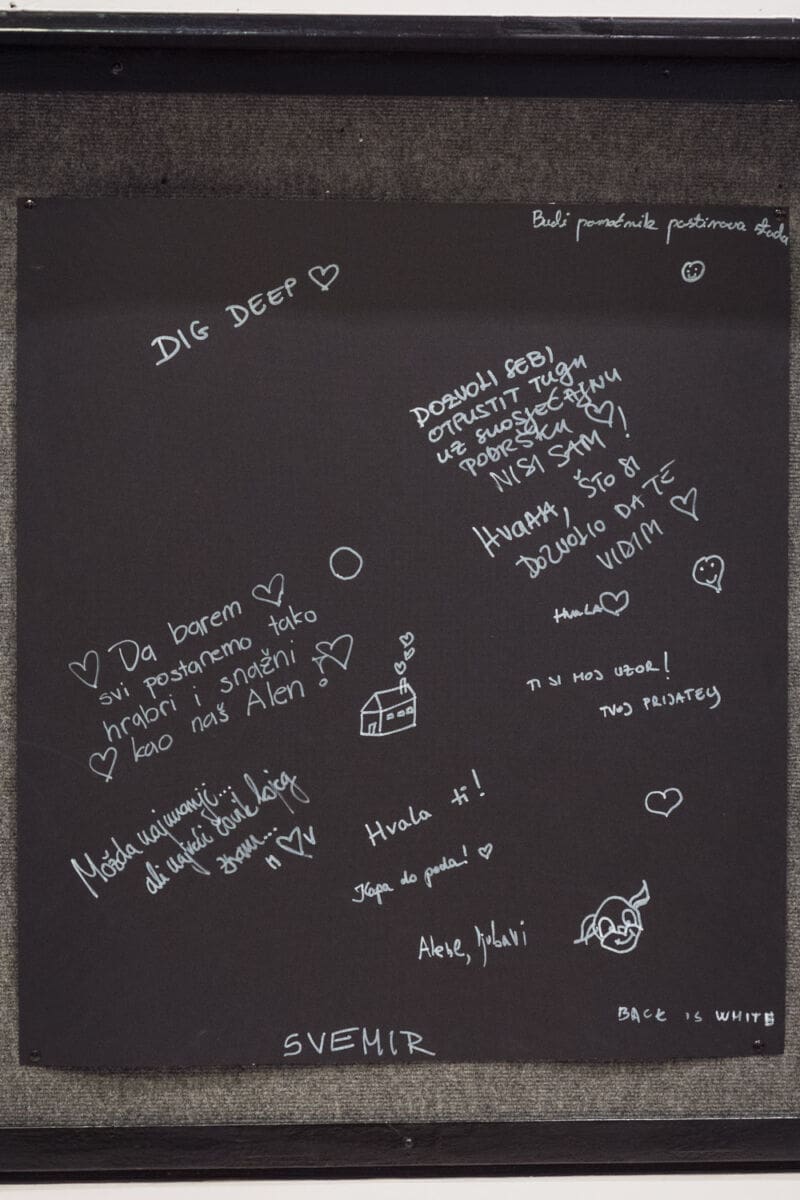 Budi pomoćnik
DIG DEEP
DOZVOLI SEBI
OTPUSTIT TUGU
UZ SUOSJEĆAJNU
PODRŠKU
NISI SAM!
HVAAAA, ŠTO SI
DOZVOLIO DA TE
VIDIM
HVALA
Da barem
svi postanemo tako
hrabri i snažni
kao naš Alen!
TI SI MOJ UZOR!
TVOJ PRIJATELJ
Možda najmanji...
ali najveći čovik kojeg
znam...
Hvala ti!
Kapa do poda!
Alene, ljubavi
BACK IS WHITE
SVEMIR